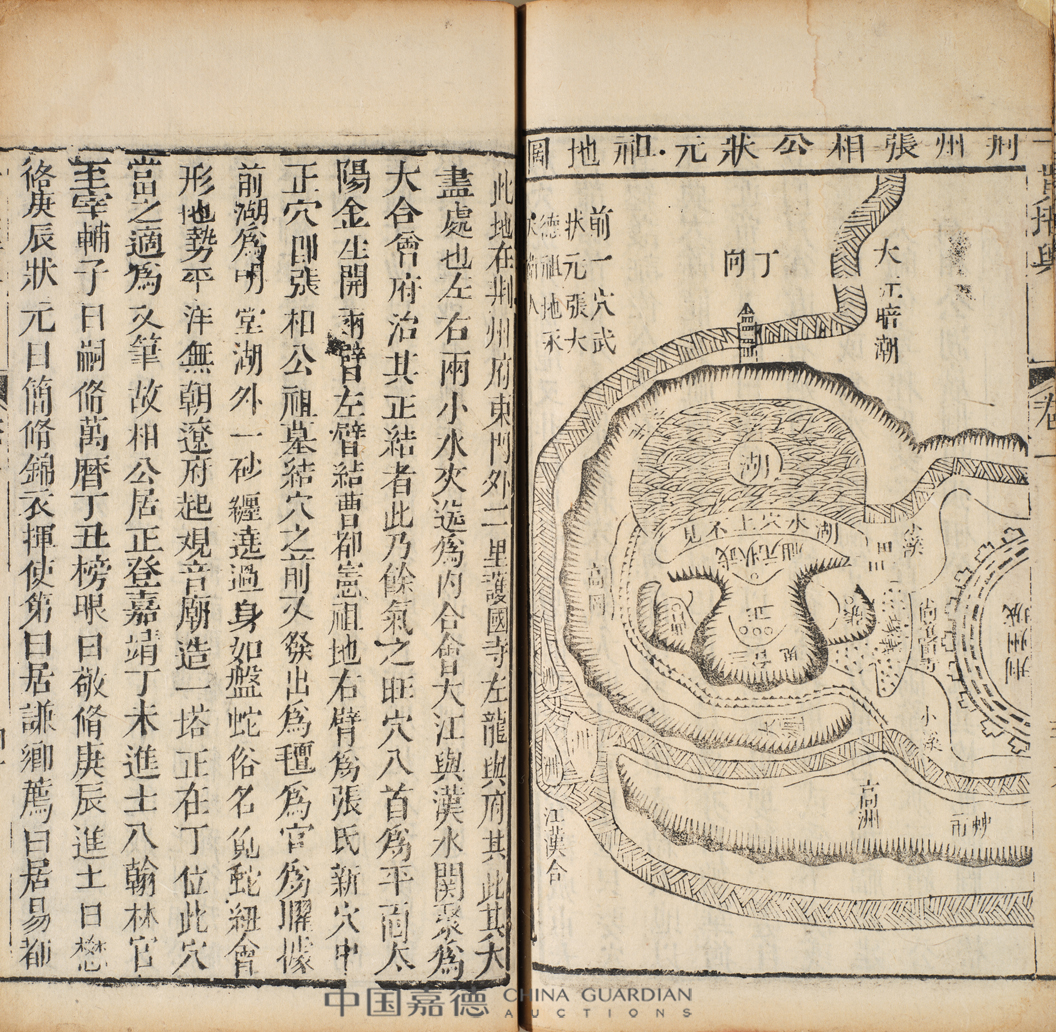 荆州張相公狀元祖地圖
大江暗潮
丁向
前一穴武
狀元張大
德祖地永
湖
湖水穴上不見
高岡
荆州城
小梁
高洲
江漢合
卷一
此地在荆州府東門外二里護國寺左龍與府其此其大
盡處也左右兩小水夾送爲内合會大江與漢水關聚爲
大合會府治其正結者此乃餘氣之旺穴八首爲平面太
陽金生開兩臂左臂結曹都憲祖地右臂爲張氏新穴中
正穴即張相公祖墓結穴之前又發出爲氊爲官爲曜據
前湖爲明堂湖外一砂纏遶過身如盤蛇俗名兔蛇紐會
形地勢平洋無朝遼府起观音廟造一塔正在丁位此穴
當之適爲文筆故相公居正登嘉靖丁未進士八翰林官
至宰輔子曰嗣脩萬曆丁丑榜眼曰敬脩庚辰進士曰懋
脩庚辰狀元曰簡脩錦衣揮使第曰居謙鄉薦曰居易都
中国嘉德 CHINA GUARDIAN AUCTIONS